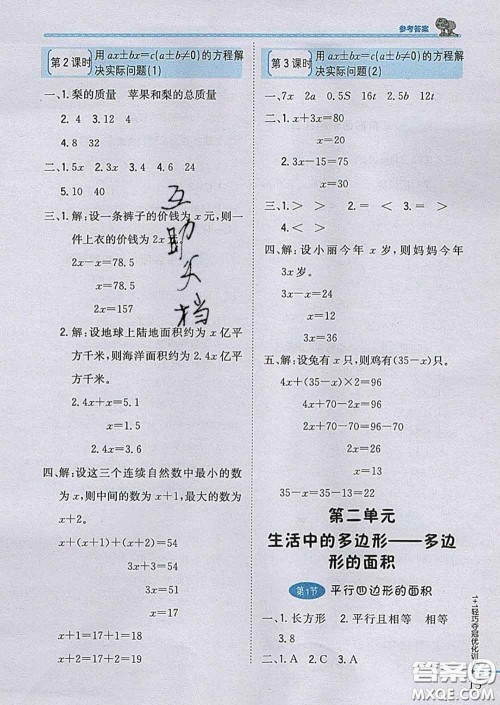 参考答案
第2课时 用ax±bx=c(a±b≠0)的方程解
决实际问题(1)
一、1.梨的质量 苹果和梨的总质量
2.4 3.12 4
4.8 32
二、1.5 2.3x 3.4 4.6 24
5.10 40
三、1.解:设一条裤子的价钱为x元,则一
件上衣的价钱为2x
2x-x=78.5
x=78.5
2x=157
2.解:设地球上陆地面积约为x亿平
方千米,则海洋面积约为2.4x亿平
方千米。
2.4x+x=5.1
3.4x=5.1
x=1.5
2.4x=3.6
四、解:设这三个连续自然数中最小的数
为x,则中间的数为x+1,最大的数为
x+2。
x+(x+1)+(x+2)=54
3x+3=54
3x=51
x=17
x+1=17+1=18
x+2=17+2=19
互助文档
第3课时 用ax±bx=c(a±b≠0)的方程解
决实际问题(2)
一、7x 2a 0.5S 16t 2.5b 12t
二、1.x+3x=80
x=20
2.3x-15=75
x=30
三、1.> > 2.> > 3.= >
4.< <
四、解:设小丽今年x岁,则妈妈今年
3x岁。
3x-x=24
x=12
3x=36
五、解:设兔有x只,则鸡有(35-x)只。
4x+(35-x)×2=96
4x+70-2x=96
2x+70=96
2x=26
x=13
35-x=35-13=22
第二单元
生活中的多边形——多边
形的面积
第1节 平行四边形的面积
一、1.长方形 2.平行且相等 相等
3.8
二、1.A 2.C 3.A
1+1轻巧夺冠优化训
答案圈
MXQE.COM